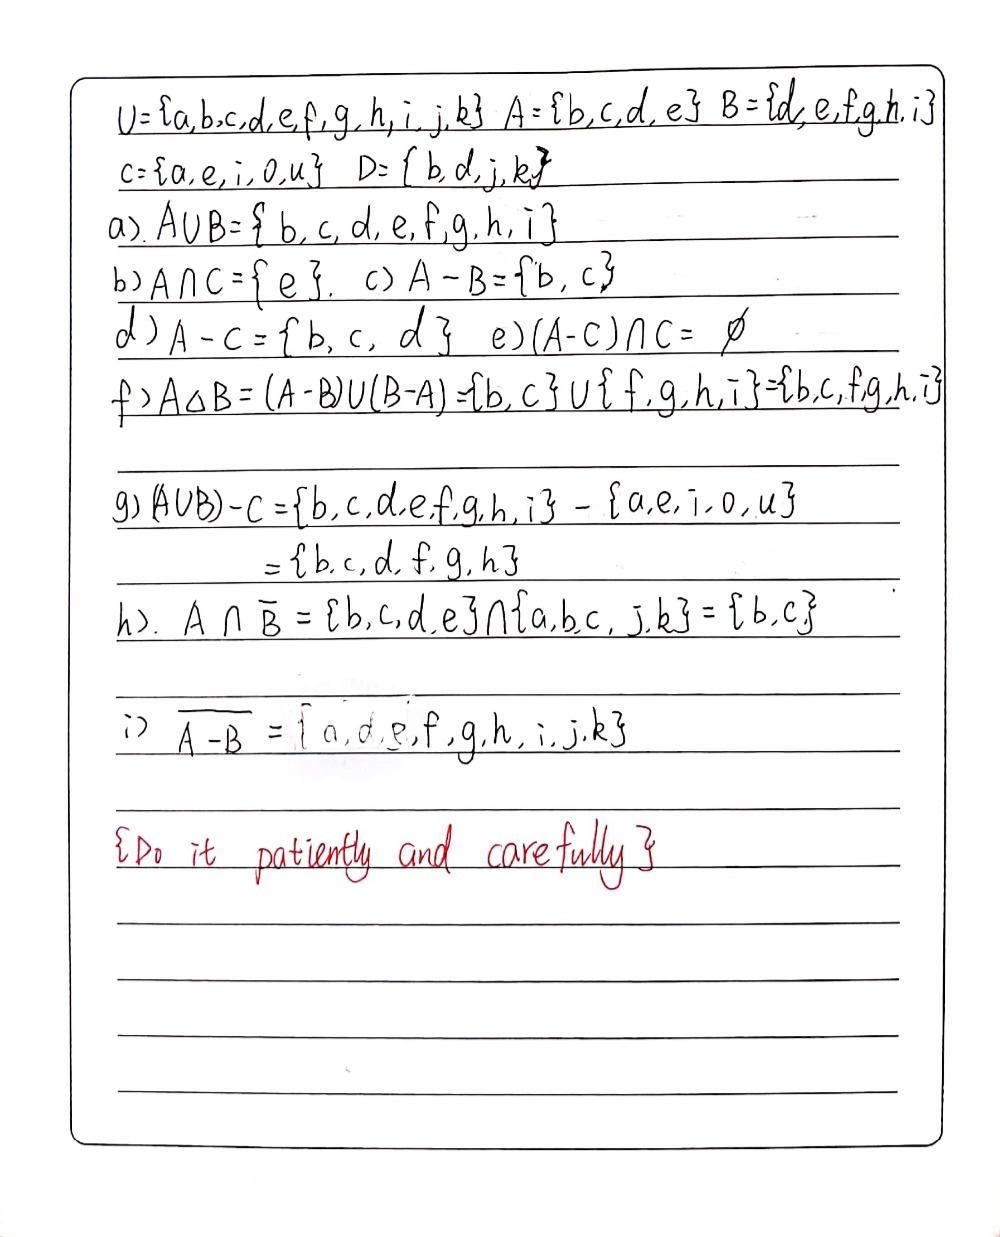 U={a,b,c,d,e,f,g,h,i,j,k} A={b,c,d,e} B={d,e,f,g,h,i}
C={a,e,i,o,u} D={b,d,j,k}
a). A∪B={b,c,d,e,f,g,h,i}
b) A∩C={e}. c) A-B={b,c}
d) A-C={b,c,d} e) (A-C)∩C= ∅
f) A△B=(A-B)∪(B-A)={b,c}∪{f,g,h,i}={b,c,f,g,h,i}
g) (A∪B)-C={b,c,d,e,f,g,h,i} - {a,e,i,o,u}
={b,c,d,f,g,h}
h). A ∩ B̅ = {b,c,d,e}∩{a,b,c, j,k} = {b,c}
i) A̅-̅B̅ = {a,d,e,f,g,h,i,j,k}
{Do it patiently and carefully}